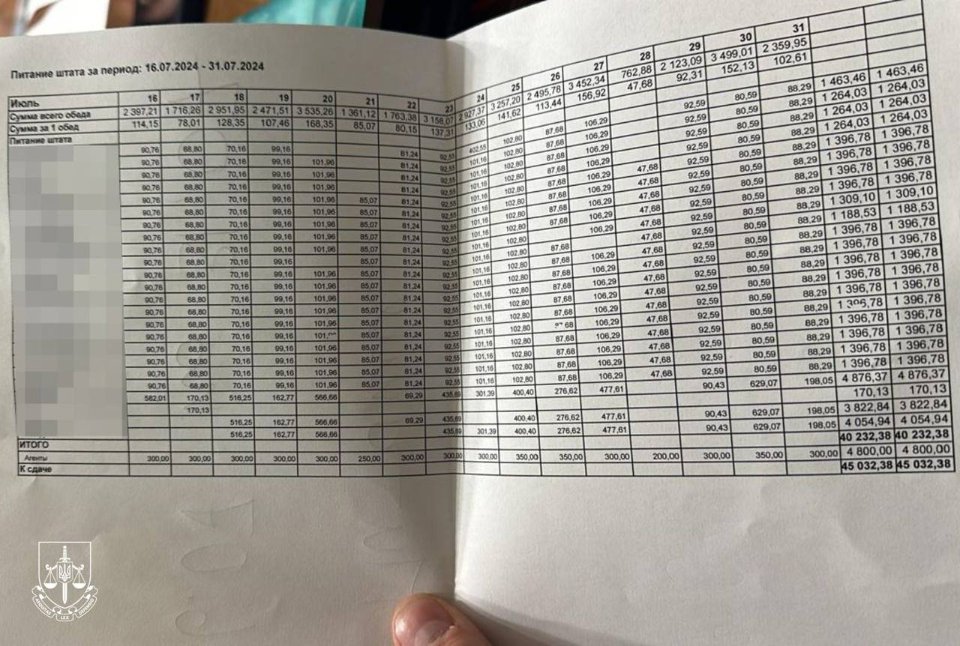 Питание штата за период: 16.07.2024 - 31.07.2024
Июль 16 17 18 19 20 21 22 23 24 25 26 27 28 29 30 31
Сумма всего обеда 2 397,21 1 716,26 2 951,95 2 471,51 3 535,26 1 361,12 1 763,38 3 158,07 2 927,37 3 257,20 2 495,78 3 452,34 762,88 2 123,09 3 499,01 2 359,95
Сумма за 1 обед 114,15 78,01 128,35 107,46 168,35 85,07 80,15 137,31 133,06 141,62 113,44 156,92 47,68 92,31 152,13 102,61
Питание штата
90,76 68,80 70,16 99,16 81,24 92,55 402,55 102,80 87,68 106,29 92,59 80,59 88,29 1 463,46 1 463,46
90,76 68,80 70,16 99,16 101,96 81,24 92,55 101,16 102,80 87,68 106,29 92,59 80,59 88,29 1 264,03 1 264,03
90,76 68,80 70,16 99,16 101,96 81,24 92,55 101,16 102,80 87,68 106,29 92,59 80,59 88,29 1 264,03 1 264,03
90,76 68,80 70,16 99,16 101,96 81,24 92,55 101,16 102,80 87,68 106,29 92,59 80,59 88,29 1 264,03 1 264,03
90,76 68,80 70,16 99,16 101,96 85,07 81,24 92,55 101,16 102,80 87,68 106,29 47,68 92,59 80,59 88,29 1 396,78 1 396,78
90,76 68,80 70,16 99,16 101,96 85,07 81,24 92,55 101,16 102,80 87,68 106,29 47,68 92,59 80,59 88,29 1 396,78 1 396,78
90,76 68,80 70,16 99,16 101,96 85,07 81,24 92,55 101,16 102,80 87,68 106,29 47,68 92,59 80,59 88,29 1 396,78 1 396,78
90,76 68,80 70,16 99,16 101,96 85,07 81,24 92,55 101,16 102,80 87,68 106,29 47,68 92,59 80,59 88,29 1 396,78 1 396,78
90,76 68,80 70,16 99,16 101,96 85,07 81,24 92,55 101,16 102,80 106,29 47,68 92,59 80,59 88,29 1 309,10 1 309,10
90,76 68,80 70,16 99,16 85,07 81,24 92,55 101,16 102,80 87,68 47,68 92,59 80,59 88,29 1 188,53 1 188,53
90,76 68,80 70,16 99,16 101,96 85,07 81,24 92,55 101,16 102,80 87,68 106,29 47,68 92,59 80,59 88,29 1 396,78 1 396,78
90,76 68,80 70,16 99,16 101,96 85,07 81,24 92,55 101,16 102,80 87,68 106,29 47,68 92,59 80,59 88,29 1 396,78 1 396,78
90,76 68,80 70,16 99,16 101,96 85,07 81,24 92,55 101,16 102,80 87,68 106,29 47,68 92,59 80,59 88,29 1 396,78 1 396,78
90,76 68,80 70,16 99,16 101,96 85,07 81,24 92,55 101,16 102,80 87,68 106,29 47,68 92,59 80,59 88,29 1 396,78 1 396,78
90,76 68,80 70,16 99,16 101,96 85,07 81,24 92,55 101,16 102,80 87,68 106,29 47,68 92,59 80,59 88,29 1 396,78 1 396,78
90,76 68,80 70,16 99,16 101,96 85,07 81,24 92,55 101,16 102,80 87,68 106,29 47,68 92,59 80,59 88,29 1 396,78 1 396,78
90,76 68,80 70,16 99,16 101,96 85,07 81,24 92,55 101,16 102,80 87,68 106,29 47,68 92,59 80,59 88,29 1 396,78 1 396,78
90,76 68,80 70,16 99,16 101,96 85,07 81,24 92,55 101,16 102,80 87,68 106,29 47,68 92,59 80,59 88,29 1 396,78 1 396,78
90,76 68,80 70,16 99,16 101,96 85,07 81,24 92,55 101,16 102,80 87,68 106,29 47,68 92,59 80,59 88,29 1 396,78 1 396,78
90,76 68,80 70,16 99,16 101,96 85,07 81,24 92,55 101,16 102,80 87,68 106,29 47,68 92,59 80,59 88,29 1 396,78 1 396,78
582,01 170,13 516,25 162,77 566,66 69,29 435,69 301,39 400,40 276,62 477,61 90,43 629,07 198,05 4 876,37 4 876,37
170,13 170,13 170,13
516,25 162,77 566,66 69,29 435,69 400,40 276,62 477,61 90,43 629,07 198,05 3 822,84 3 822,84
516,25 162,77 566,66 435,69 301,39 400,40 276,62 477,61 90,43 629,07 198,05 4 054,94 4 054,94
ИТОГО 40 232,38 40 232,38
Агенты 300,00 300,00 300,00 300,00 300,00 250,00 300,00 300,00 300,00 350,00 350,00 300,00 200,00 300,00 350,00 300,00 4 800,00 4 800,00
К сдаче 45 032,38 45 032,38